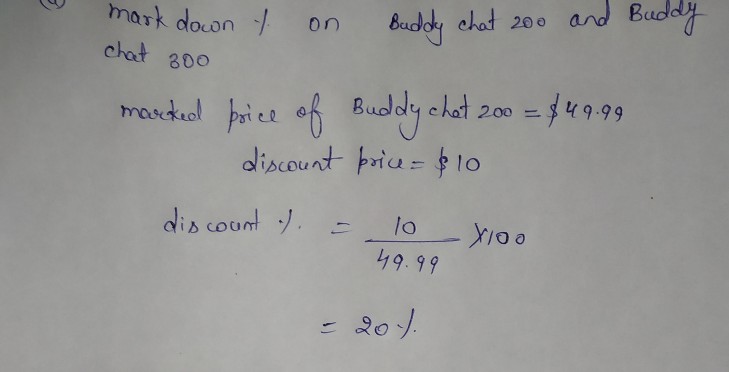 (a) mark down % on Buddy chat 200 and Buddy
chat 300
marked price of Buddy chat 200 = $49.99
discount price = $10
discount % = 10 / 49.99 X100
= 20%